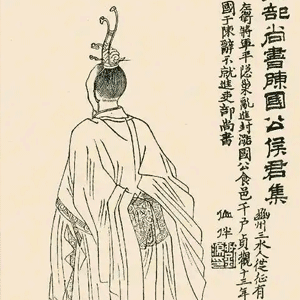 部尚書陳國公侯君集
豳州三水人從征有
左衛將軍平隱巢亂進封潞國公食邑千戶貞觀十三年
國于陳辭不就進吏部尚書